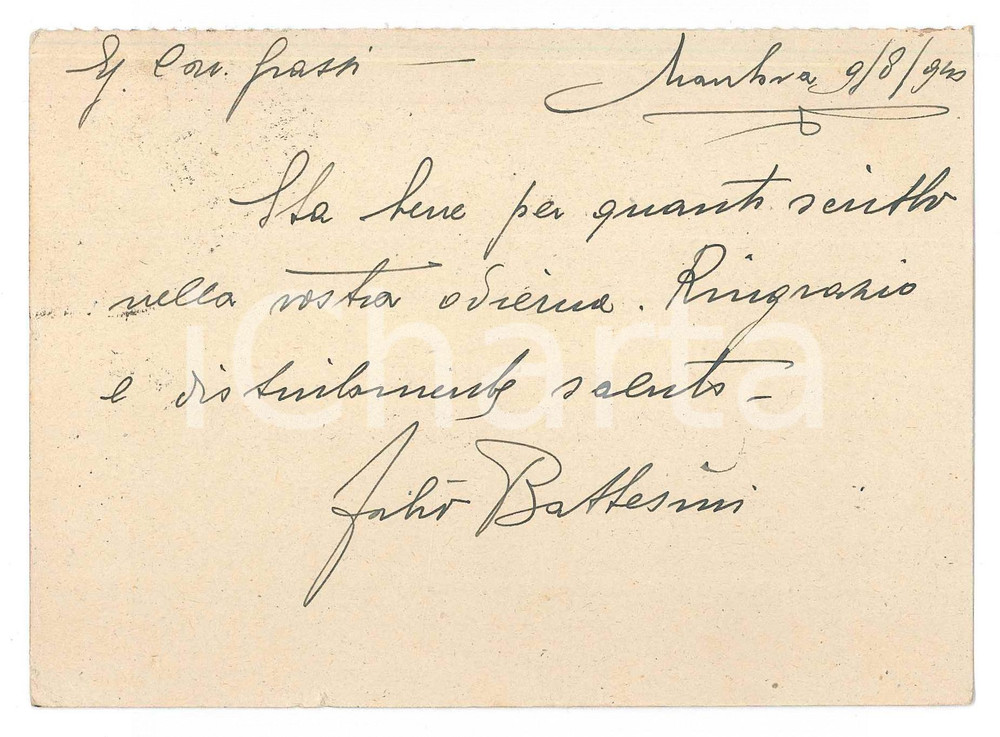 Eg. Cav. Grassi —
Mantova 9/8/940
Sta bene per quanto scritto
nella vostra odierna. Ringrazio
e distintamente saluto —
Fabio Battesini
iCharta